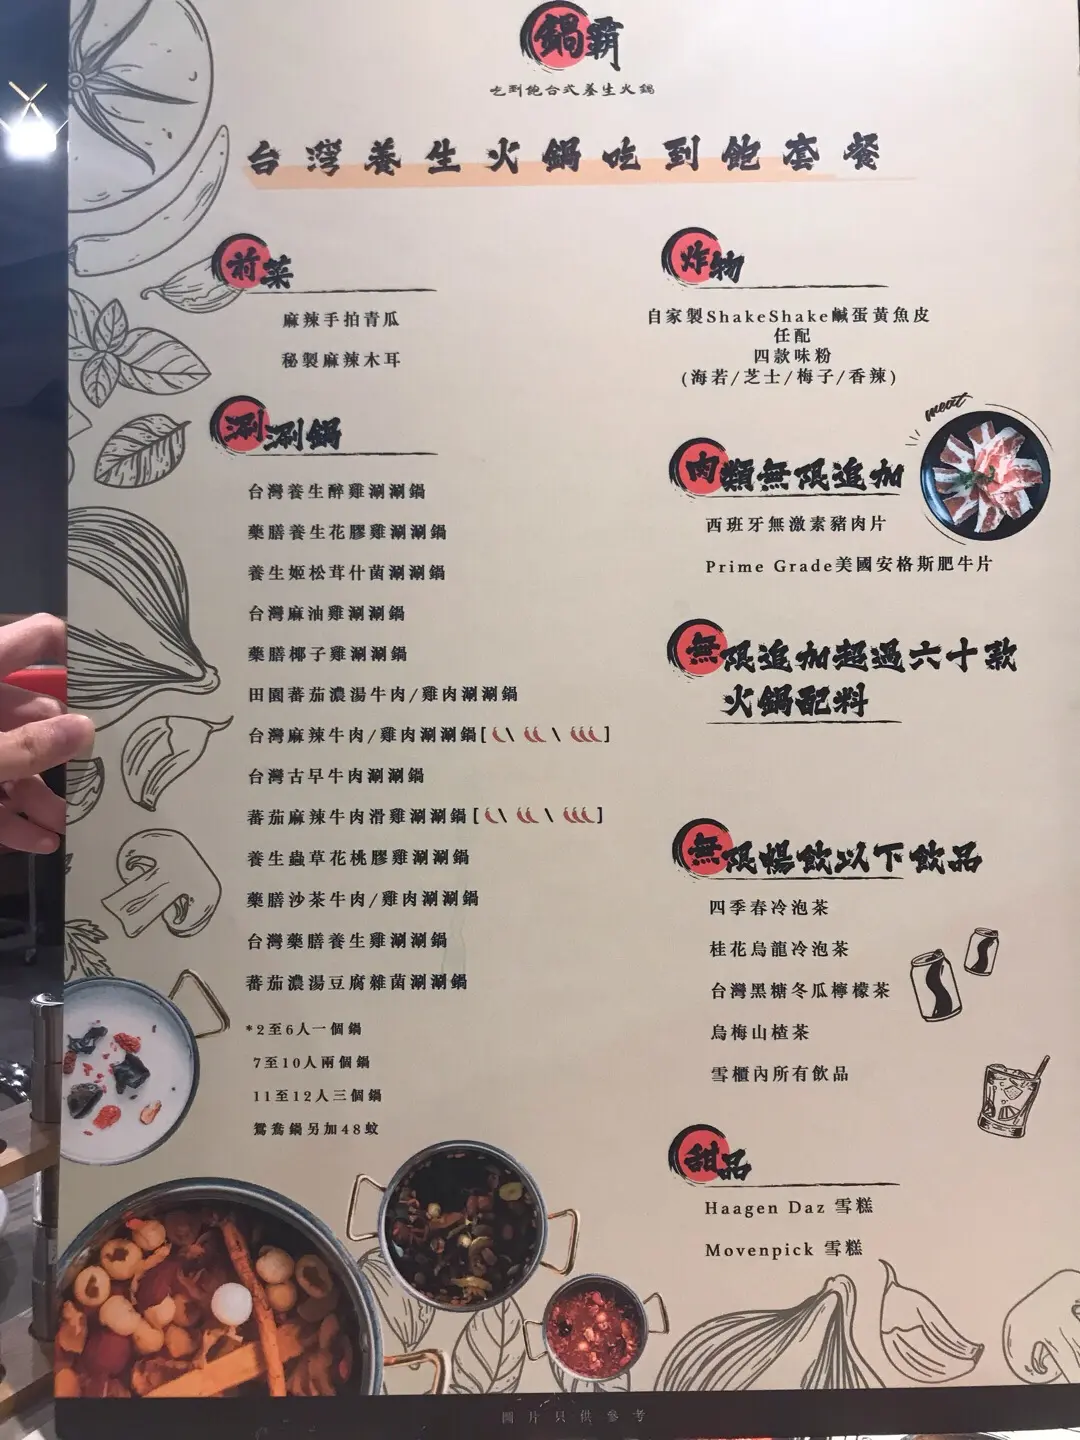 鍋霸
吃到飽台式養生火鍋
台灣養生火鍋吃到飽套餐
前菜
麻辣手拍青瓜
秘製麻辣木耳
涮涮鍋
台灣養生醉雞涮涮鍋
藥膳養生花膠雞涮涮鍋
養生姬松茸什菌涮涮鍋
台灣麻油雞涮涮鍋
藥膳椰子雞涮涮鍋
田園蕃茄濃湯牛肉/雞肉涮涮鍋
台灣麻辣牛肉/雞肉涮涮鍋[ \ \ ]
台灣古早牛肉涮涮鍋
蕃茄麻辣牛肉滑雞涮涮鍋[ \ \ ]
養生蟲草花桃膠雞涮涮鍋
藥膳沙茶牛肉/雞肉涮涮鍋
台灣藥膳養生雞涮涮鍋
蕃茄濃湯豆腐雜菌涮涮鍋
*2至6人一個鍋
7至10人兩個鍋
11至12人三個鍋
鴛鴦鍋另加48蚊
炸物
自家製ShakeShake鹹蛋黃魚皮
任配
四款味粉
(海若/芝士/梅子/香辣)
meat
肉類無限追加
西班牙無激素豬肉片
Prime Grade美國安格斯肥牛片
無限追加超過六十款
火鍋配料
無限暢飲以下飲品
四季春冷泡茶
桂花烏龍冷泡茶
台灣黑糖冬瓜檸檬茶
烏梅山楂茶
雪櫃內所有飲品
甜品
Haagen Daz 雪糕
Movenpick 雪糕
圖片只供參考